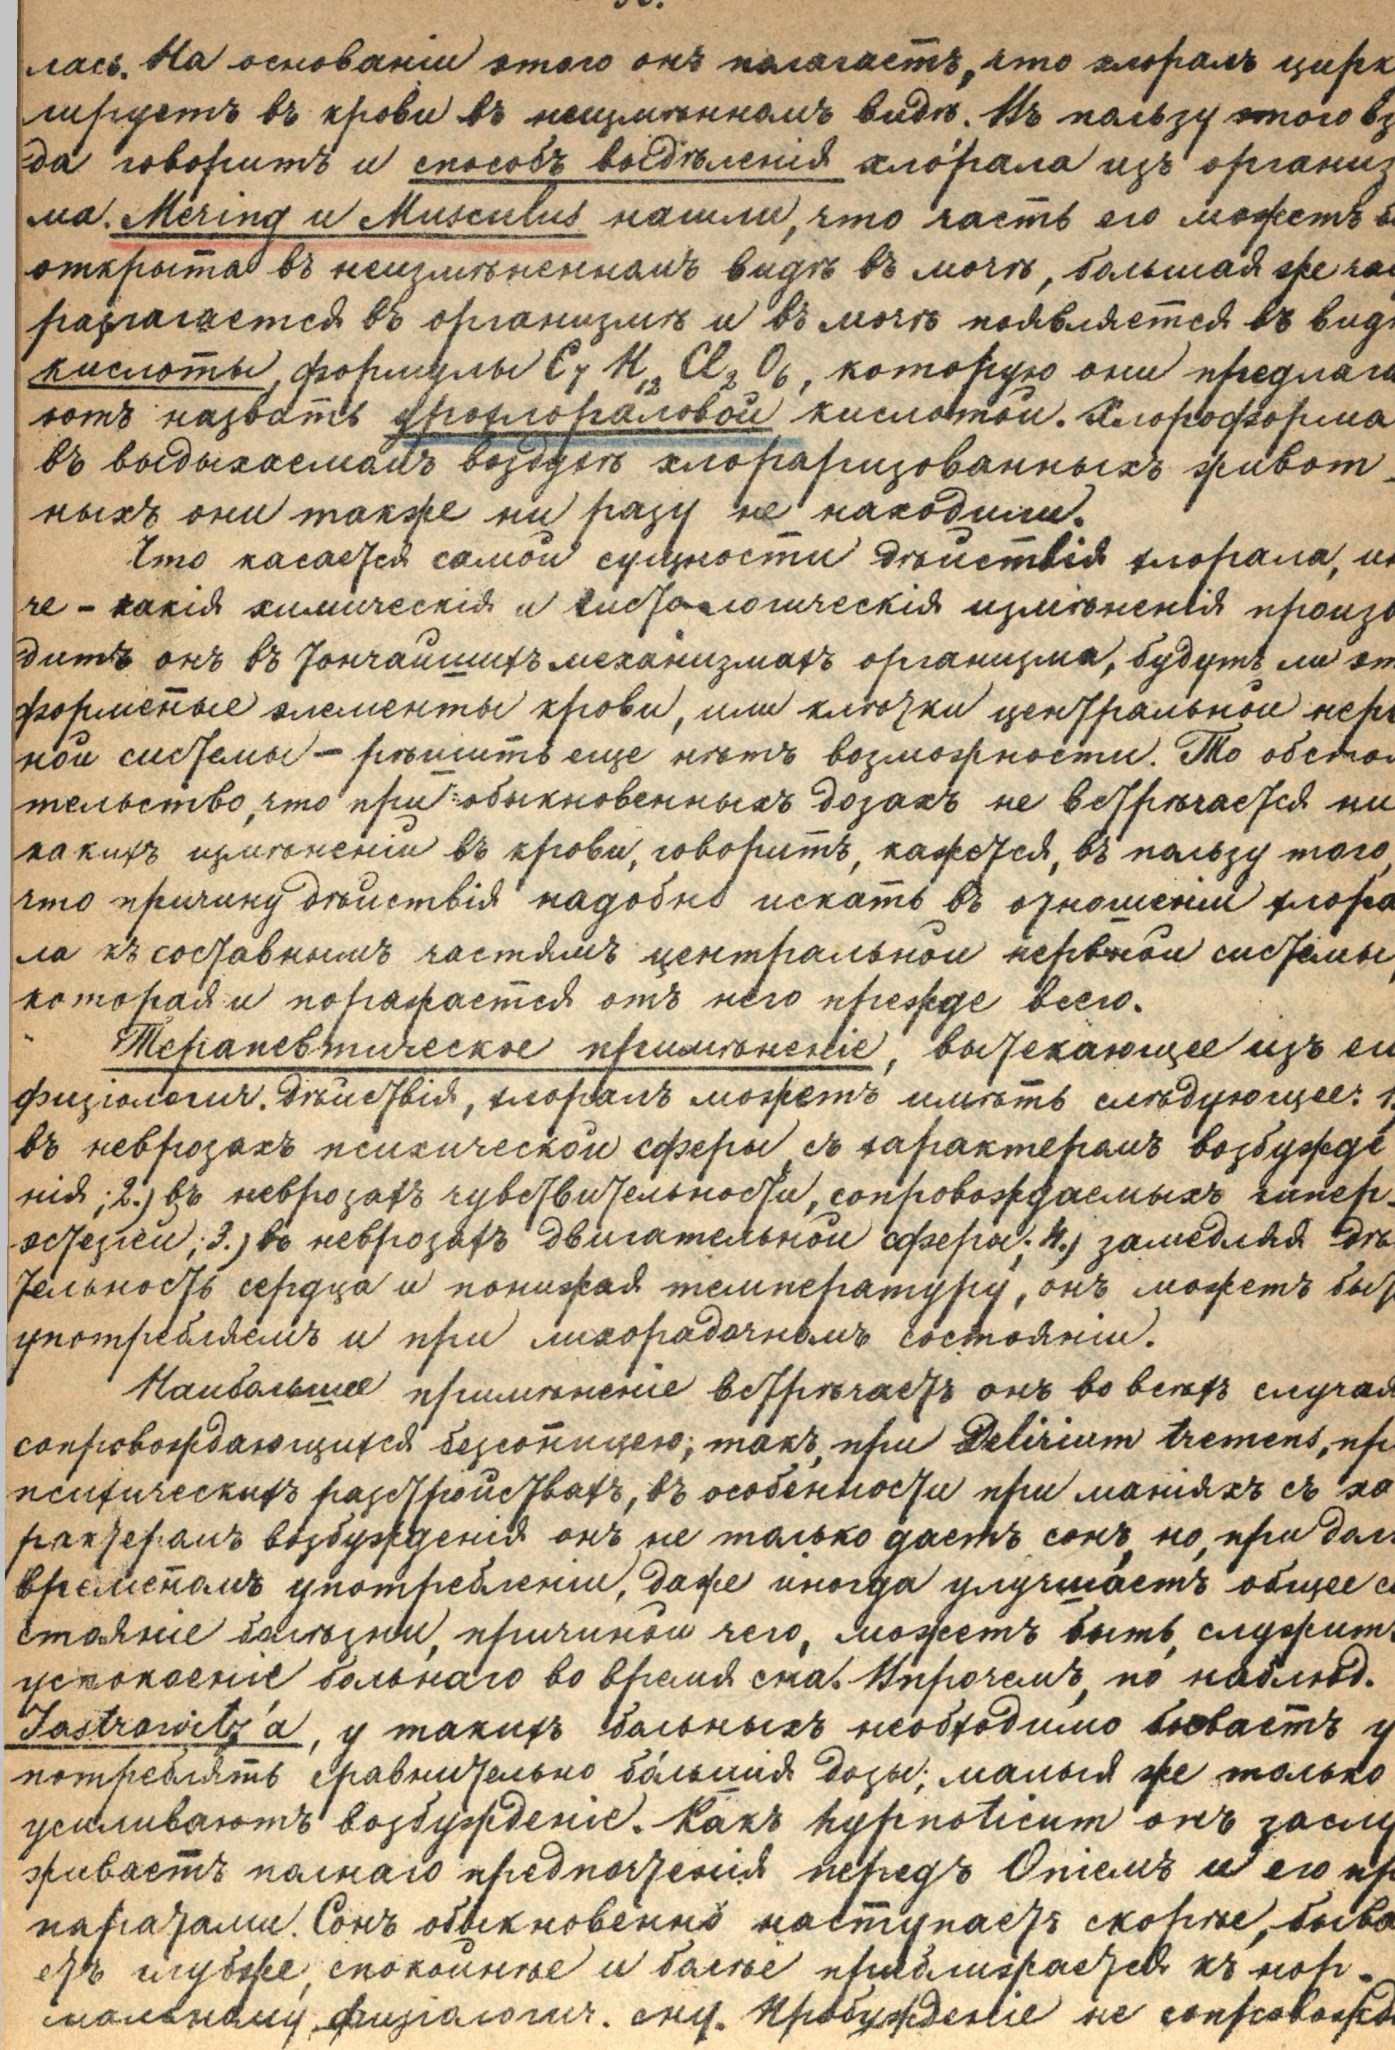 лась. На основаніи этого онъ полагаетъ, что хлоралъ цирк
лируетъ въ крови въ неизмѣнномъ видѣ. Въ пользу этого вз
да говоритъ и способъ выдѣленія хлорала изъ организ
ма. Mering и Musculus нашли, что часть его можетъ б
открыта въ неизмѣненномъ видѣ въ мочѣ, большая же час
разлагается въ организмѣ и въ мочѣ появляется въ видѣ
кислоты, формулы C7 H12 Cl2 O6, которую они предлага
ютъ назвать урохлораловой кислотой. Хлороформа
въ выдыхаемомъ воздухѣ хлорализованныхъ живот-
ныхъ они также ни разу не находили.
Что касается самой сущности дѣйствія хлорала, ина
че - какія химическія и гистологическія измѣненія произво
дитъ онъ въ тончайшихъ механизмахъ организма, будутъ ли эт
форменые элементы крови, или клѣтки центральной нерв
ной системы - рѣшить еще нѣтъ возможности. То обстоя
тельство, что при обыкновенныхъ дозахъ не встрѣчается ни
какихъ измѣненій въ крови, говоритъ, кажется, въ пользу того,
что причину дѣйствія надобно искать въ отношеніи хлора
ла къ составнымъ частямъ центральной нервной системы,
которая и поражается отъ него прежде всего.
Терапевтическое примѣненіе, вытекающее изъ ег
физіологич. дѣйствія, хлоралъ можетъ имѣть слѣдующее: 1.
въ неврозахъ психической сферы съ характеромъ возбужде
нія; 2.) въ неврозахъ чувствительности, сопровождаемыхъ гипер-
эстезіей; 3.) въ неврозахъ двигательной сферы; 4.) замедляя дѣя
тельность сердца и понижая температуру, онъ можетъ быт
употребляемъ и при лихорадочномъ состояніи.
Наибольшее примѣненіе встрѣчаетъ онъ во всѣхъ случая
сопровождающихся безсонницею; такъ, при Delirium tremens, пр
психическихъ разстройствахъ, въ особенности при маніяхъ съ ха
рактеромъ возбужденія онъ не только даетъ сонъ, но, при долг
временомъ употребленіи, даже иногда улучшаетъ общее со
стояніе болѣзни, причиной чего, можетъ быть, служитъ
успокоеніе больнаго во время сна. Впрочемъ, по наблюд.
Jastrowitz'а, у такихъ больныхъ необходимо бываетъ у
потреблять сравнительно бо́льшія дозы; малыя же только
усиливаютъ возбужденіе. Какъ hypnoticum онъ заслу
живаетъ полнаго предпочтенія передъ Опіемъ и его пр
паратами. Сонъ обыкновенно наступаетъ скорѣе, быва
етъ глубже, спокойнѣе и болѣе приближается къ нор-
мальному физіологич. сну. Пробужденіе не сопровожда